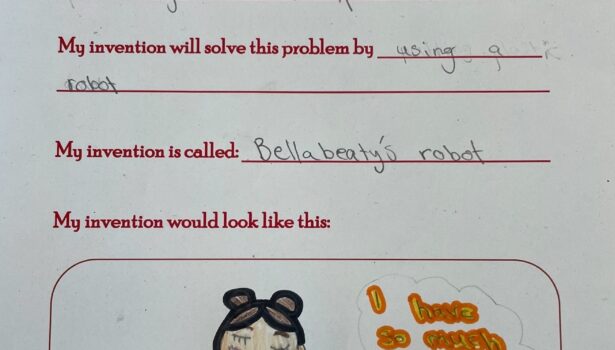 My invention will solve this problem by using a
robot
My invention is called: Bellabeaty's robot
My invention would look like this:
I have
so much